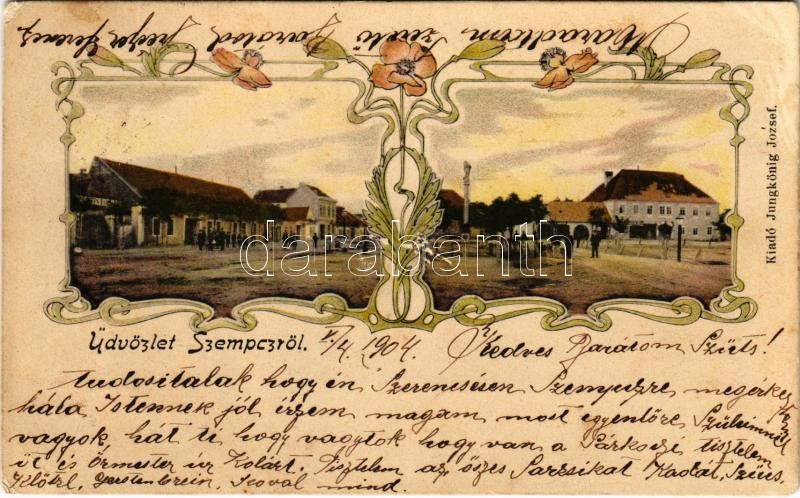 Maradtam szerető Barátod Ferencz
Kiadó Jungkönig József.
darabanth
Üdvözlet Szempczről. V/4 1904. Kedves Barátom Szüts!
tudositalak hogy én Szerencsésen Szempczre megérkez
hála Istennek jól érzem magam most egyenlőre Szüleimnél
vagyok, hát ti hogy vagytok hogy van a Sárközi tisztelem
őt és Őrmester úr Kolárt. Tisztelem az összes Kadát, Szücs
Gerstenbrein, mind.